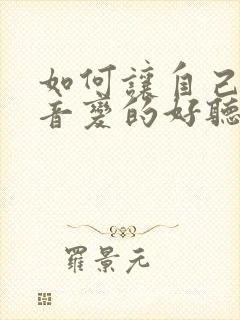 如何讓自己
音變的好聽
羅景元